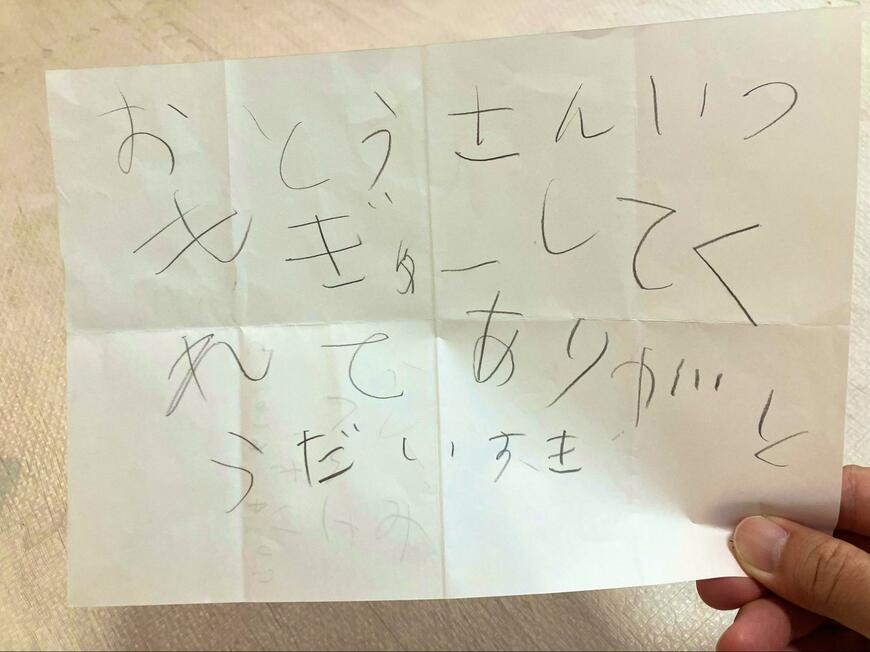 おとうさんいつ
もぎターしてく
れてありがと
うだいすき